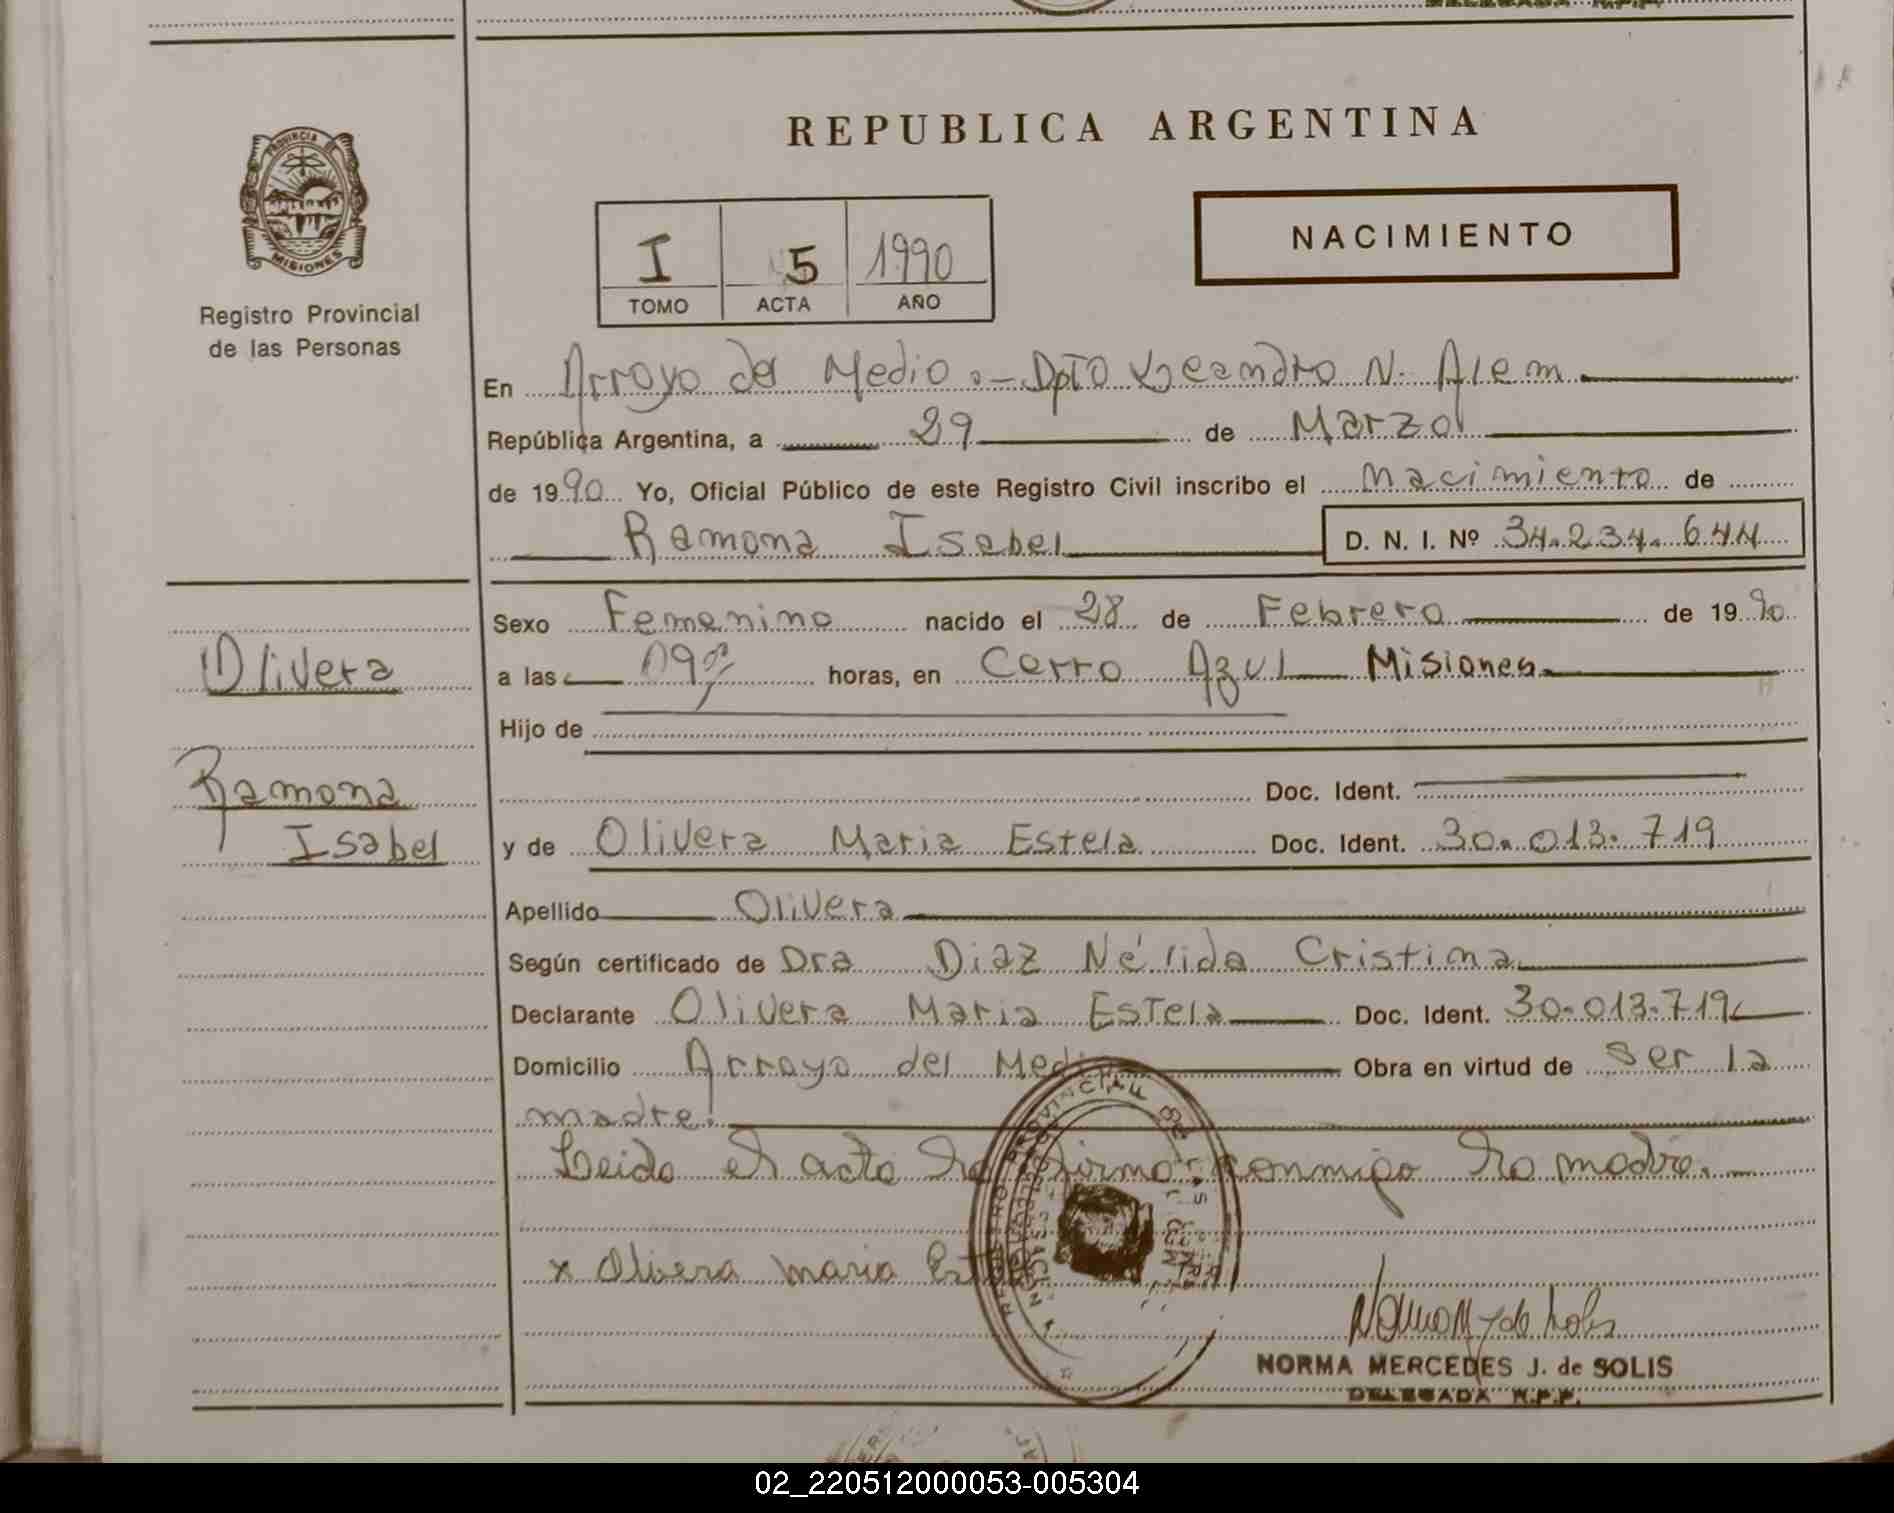 REPUBLICA ARGENTINA
PROVINCIA DE
MISIONES
Registro Provincial
de las Personas
I 5 1990
TOMO ACTA AÑO
NACIMIENTO
En Arroyo del Medio.- Dpto Leandro N. Alem
República Argentina, a 29 de Marzo
de 1990 Yo, Oficial Público de este Registro Civil inscribo el Nacimiento de
Ramona Isabel D. N. I. Nº 34.234.644
Olivera
Ramona
Isabel
Sexo Femenino nacido el 28 de Febrero de 1990
a las 09 horas, en Cerro Azul Misiones
Hijo de
Doc. Ident.
y de Olivera Maria Estela Doc. Ident. 30.013.719
Apellido Olivera
Según certificado de Dra Diaz Nélida Cristina
Declarante Olivera Maria Estela Doc. Ident. 30.013.719
Domicilio Arroyo del Medio Obra en virtud de ser la
madre.
Leida el acta la firma conmigo la madre.
x Olivera maria
NORMA MERCEDES J. de SOLIS
DELEGADA R.P.P.
02_220512000053-005304